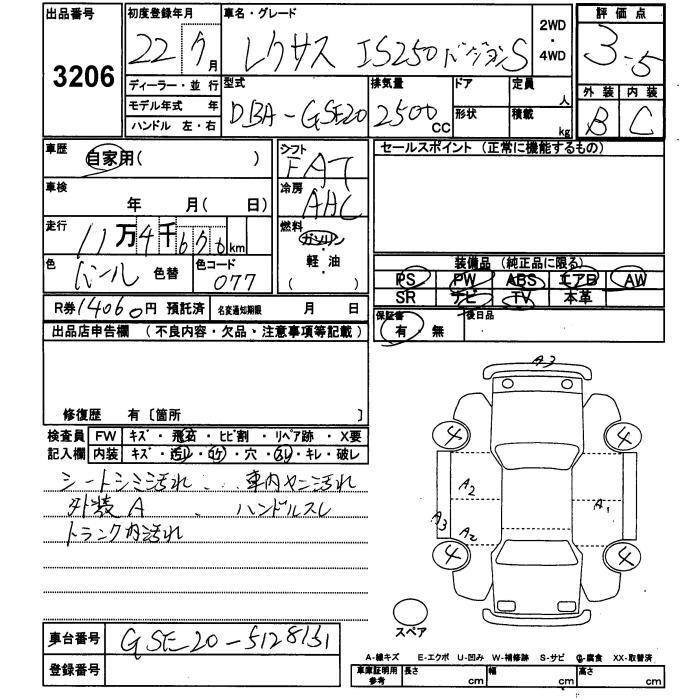 出品番号 3206
初度登録年月 22年 9月
車名・グレード レクサス IS250 バージョンS
2WD ・ 4WD
評価点 3.5
ディーラー・並行
モデル年式 年
ハンドル 左・右
型式 DBA-GSE20
排気量 2500 CC
ドア
形状
定員 人
積載 kg
外装 B
内装 C
車歴 自家用( )
車検 年 月( 日)
走行 11万4千676km
色 パール 色替
色コード 077
シフト FAT
冷房 AAC
燃料 ガソリン・軽油 ( )
セールスポイント (正常に機能するもの)
装備品 (純正品に限る)
PS PW ABS エアB AW
SR ナビ TV 本革
R券 14060円 預託済 名変通知期限 月 日
保証書 有 無
後日品
出品店申告欄 (不良内容・欠品・注意事項等記載)
修復歴 有〔箇所 〕
検査員 FW キズ・飛石・ヒビ割・リペア跡・X要
記入欄 内装 キズ・汚レ・コゲ・穴・スレ・キレ・破レ
シートシミ汚れ 、 車内ヤニ汚れ
外装A 、 ハンドルスレ
トランク内汚れ
A3
4 4
A2 A1
A3 A2
4 4
スペア
車台番号 GSE20-5128131
登録番号
A-線キズ E-エクボ U-凹み W-補修跡 S-サビ C-腐食 XX-取替済
車庫証明用参考 長さ cm 幅 cm 高さ cm